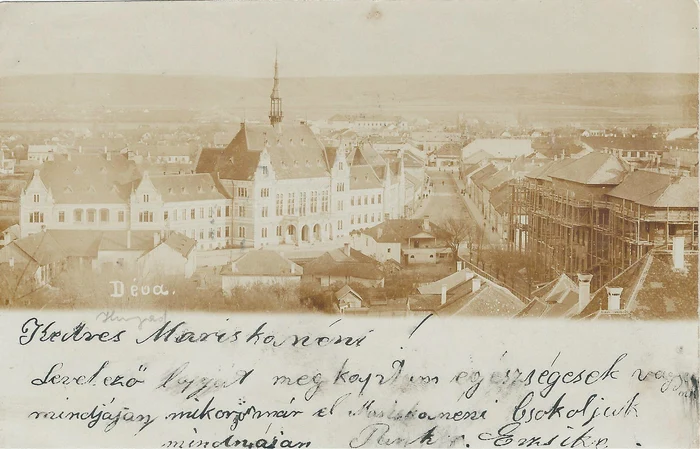 Déva.
Kedves Mariskanéni!
Levelező lapját meg kaptam egészségesek vagyunk
mindjájan mikor már el Mariskanéni Csokoljuk
mindnyájan Emsike.